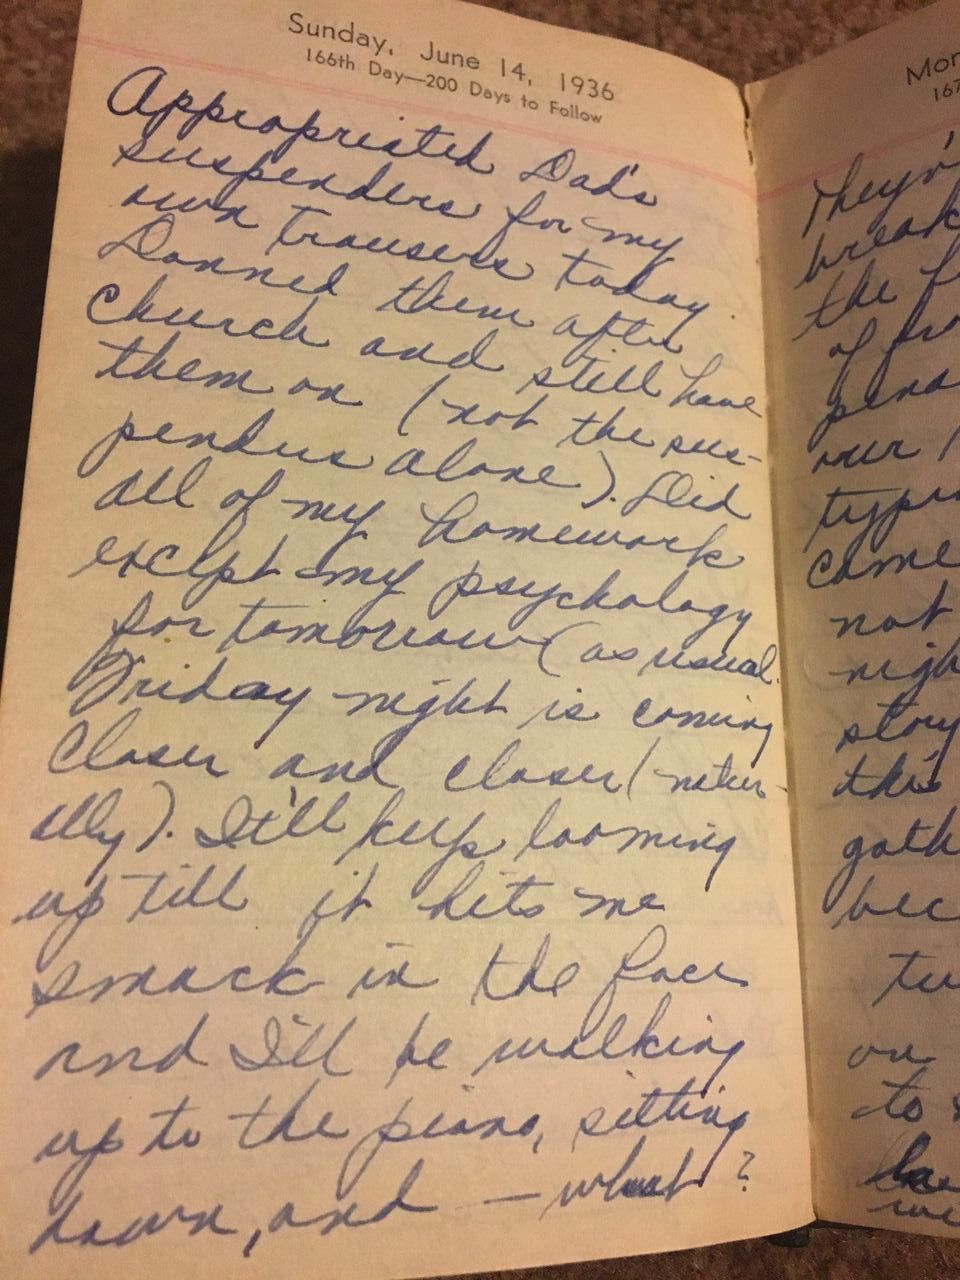 Sunday, June 14, 1936
166th Day—200 Days to Follow
Appropriated Dad's
suspenders for my
own trousers today.
Donned them after
church and still have
them on (not the sus-
penders alone). Did
all of my homework
except my psychology
for tomorrow (as usual.
Friday night is coming
closer and closer (natur-
ally). It'll keep looming
up till it hits me
smack in the face
and I'll be walking
up to the piano, sitting
down, and — what?
Mon
167
They'r
break
the f
of pro
pena
our
typi
came
not
nigh
story
this
gath
bec
tu
on
to